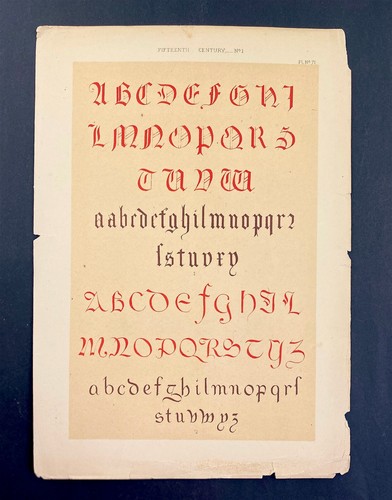 FIFTEENTH CENTURY. Nº1
A B C D E F G H I
L M N O P Q R S
T U V W
a a b c d e f g h i l m n o p q r ꝛ
ſ s t u v x y
A B C D E f G H I L
M N O P Q R S T Y Z
a b c d e f g h i l m n o p q r ſ
s t u v w y z